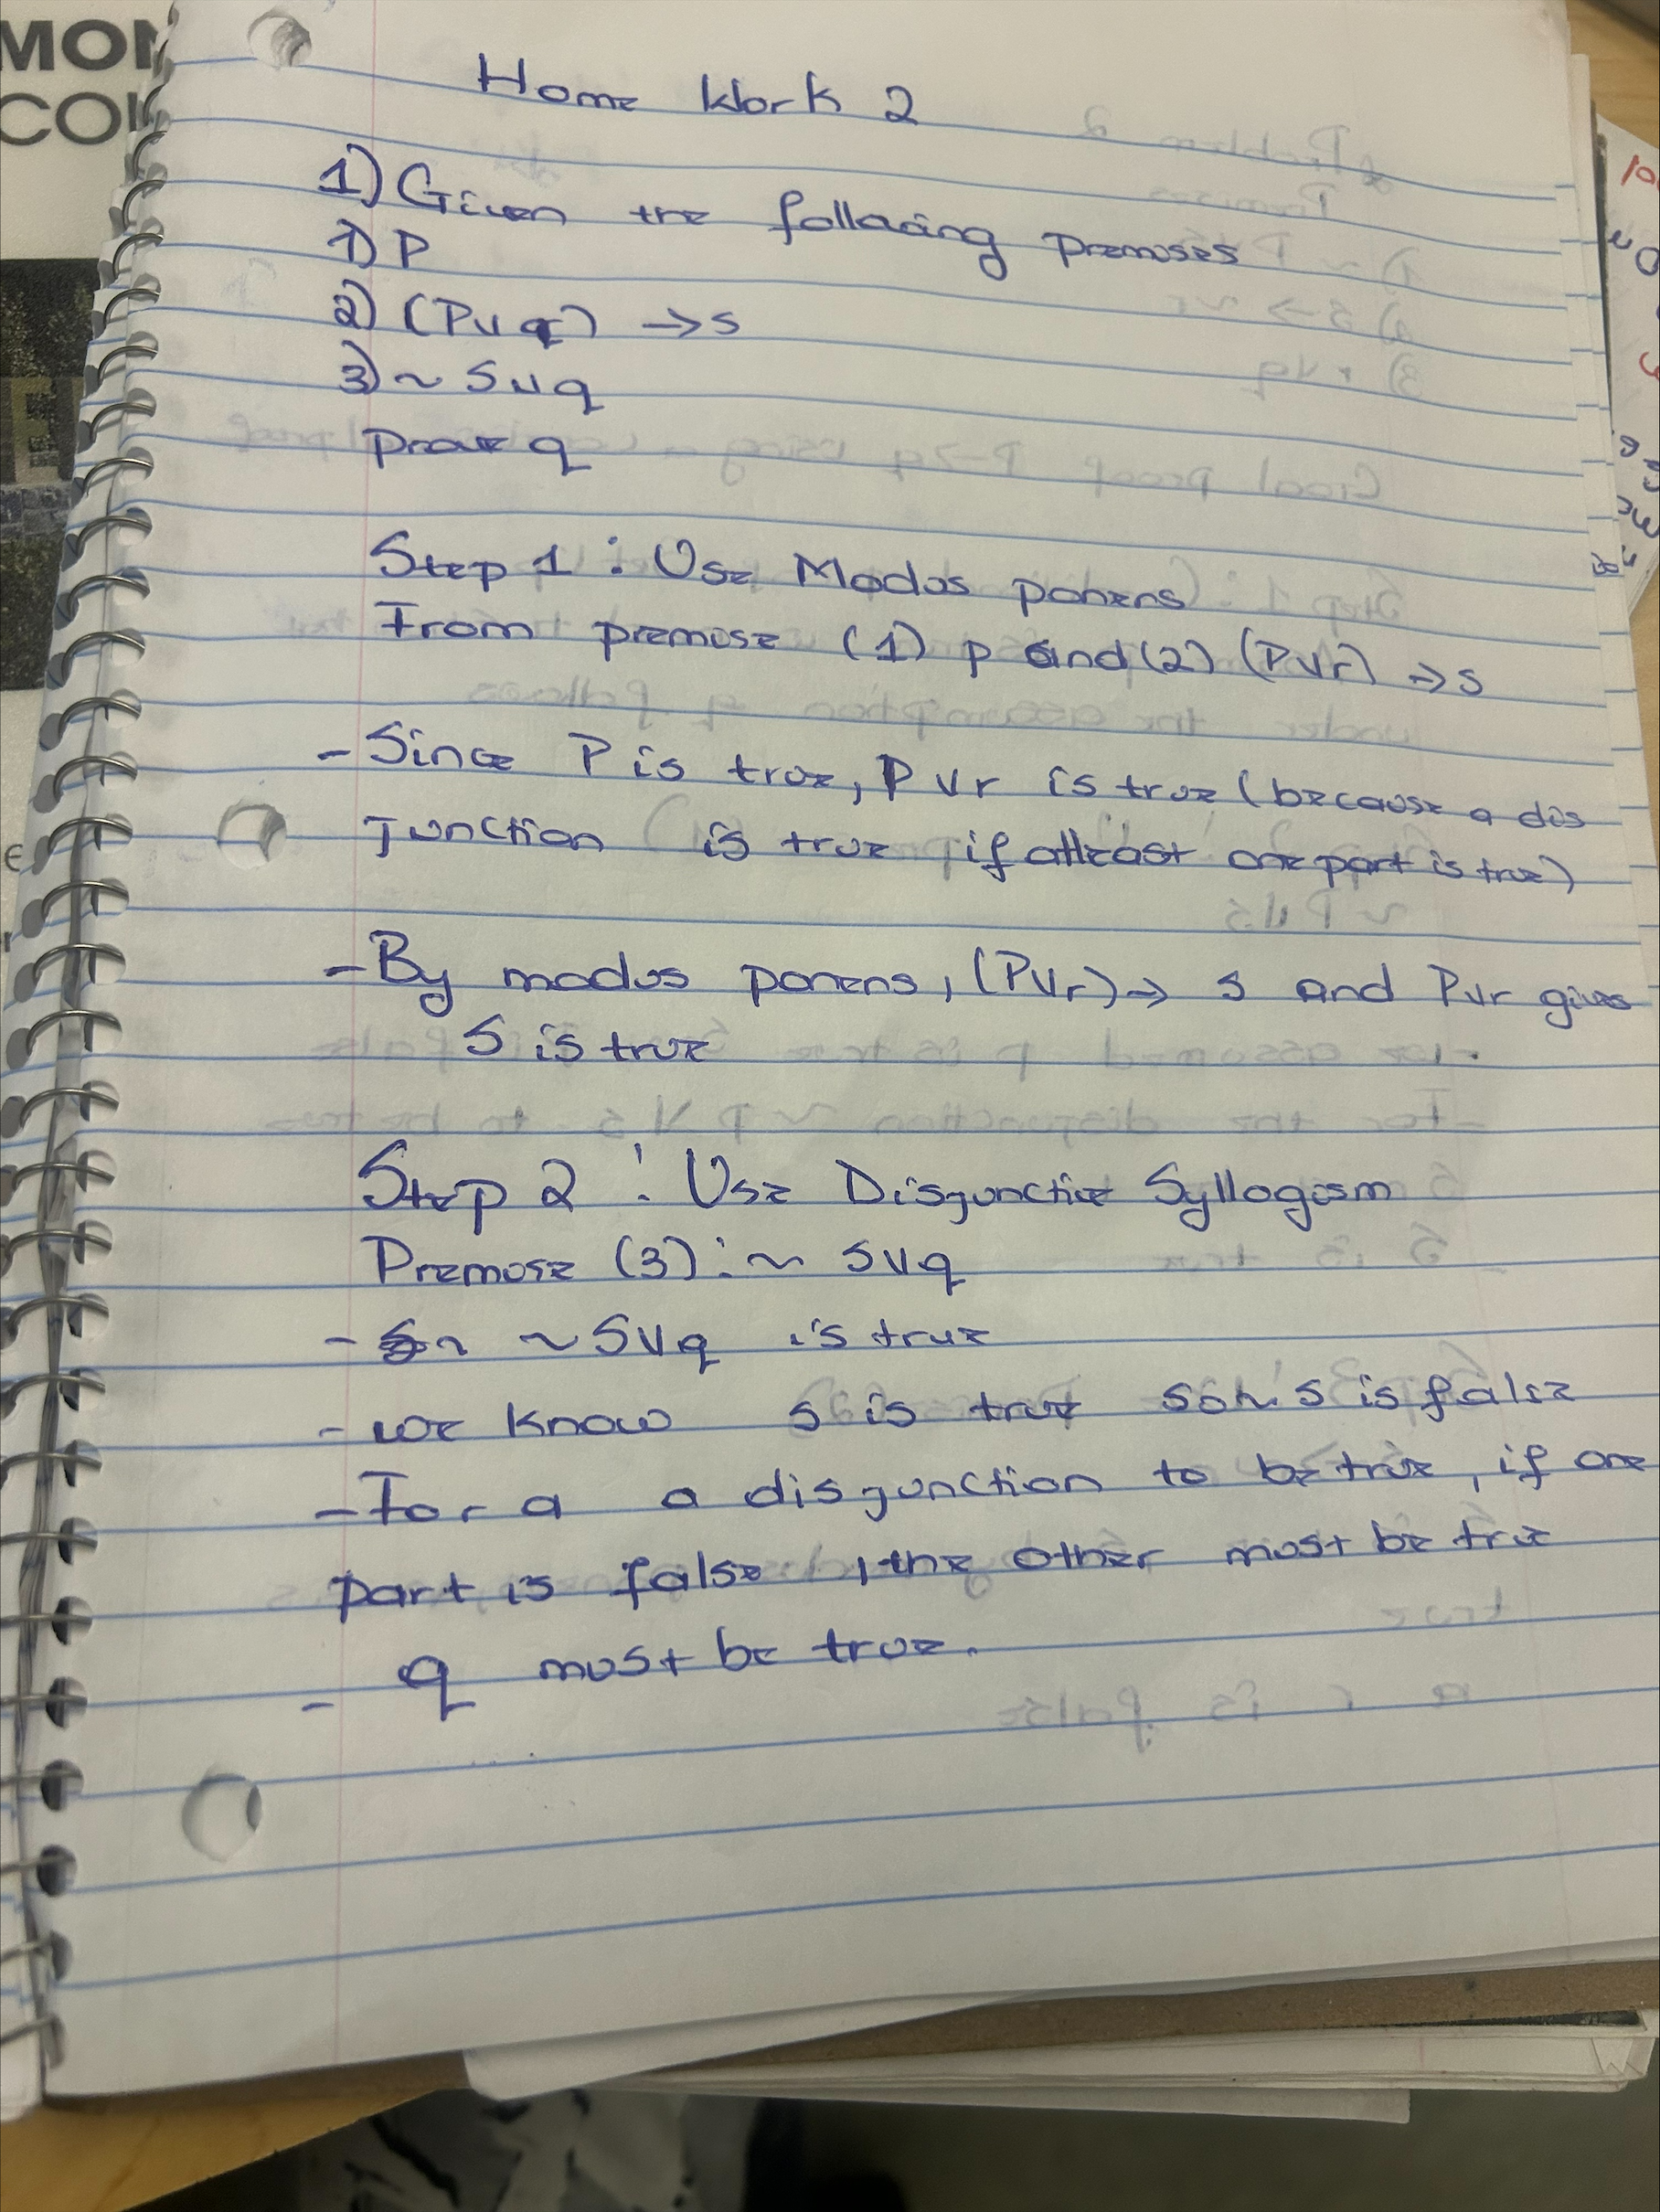 MON
CON
Home Work 2
1) Given the following premises
1) P
2) (P ∨ q) → s
3) ~ S ∨ q
Prove q
Step 1 : Use Modus ponens
From premise (1) p and (2) (P ∨ r) → s
- Since P is true, P ∨ r is true (because a dis
junction is true if atleast one part is true)
- By modus ponens, (P ∨ r) → s and P ∨ r gives
S is true
Step 2 : Use Disjunctive Syllogism
Premise (3) : ~ S ∨ q
- ~ S ∨ q is true
- we know s is true so ~ s is false
- For a a disjunction to be true, if one
part is false, the other must be true
- q must be true.